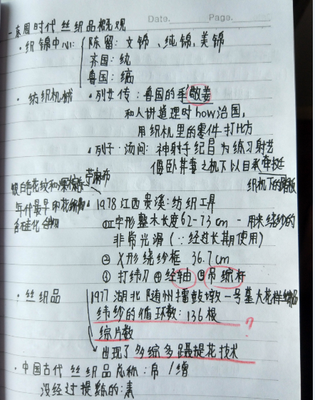 Date. Page.
一.东周时代丝织品概观
·织锦中心: 陈留: 文锦、纯锦、美锦
齐国: 纨
鲁国: 缟
·纺织机械 ·列女传: 鲁国的季敬姜
和人讲道理时how治国,
用织机里的零件打比方
·列子·汤问: 神射手纪昌为练习射艺
偃卧其妻之机下以目承牵挺
织机下的
·1978江西贵溪: 纺织工具
①工字形整木长度62-73cm - 用来绕纱的
非常光滑 (∵经过长期使用)
②X形绕纱框 36.7cm
③打纬刀④经轴⑤吊综杆
·丝织品 1977湖北随州擂鼓墩一号墓大花样
纬纱的循环数: 136根 ?
综片数
出现了多综多蹑提花技术
·中国古代丝织品总称: 帛/缯
没经过提练的: 素